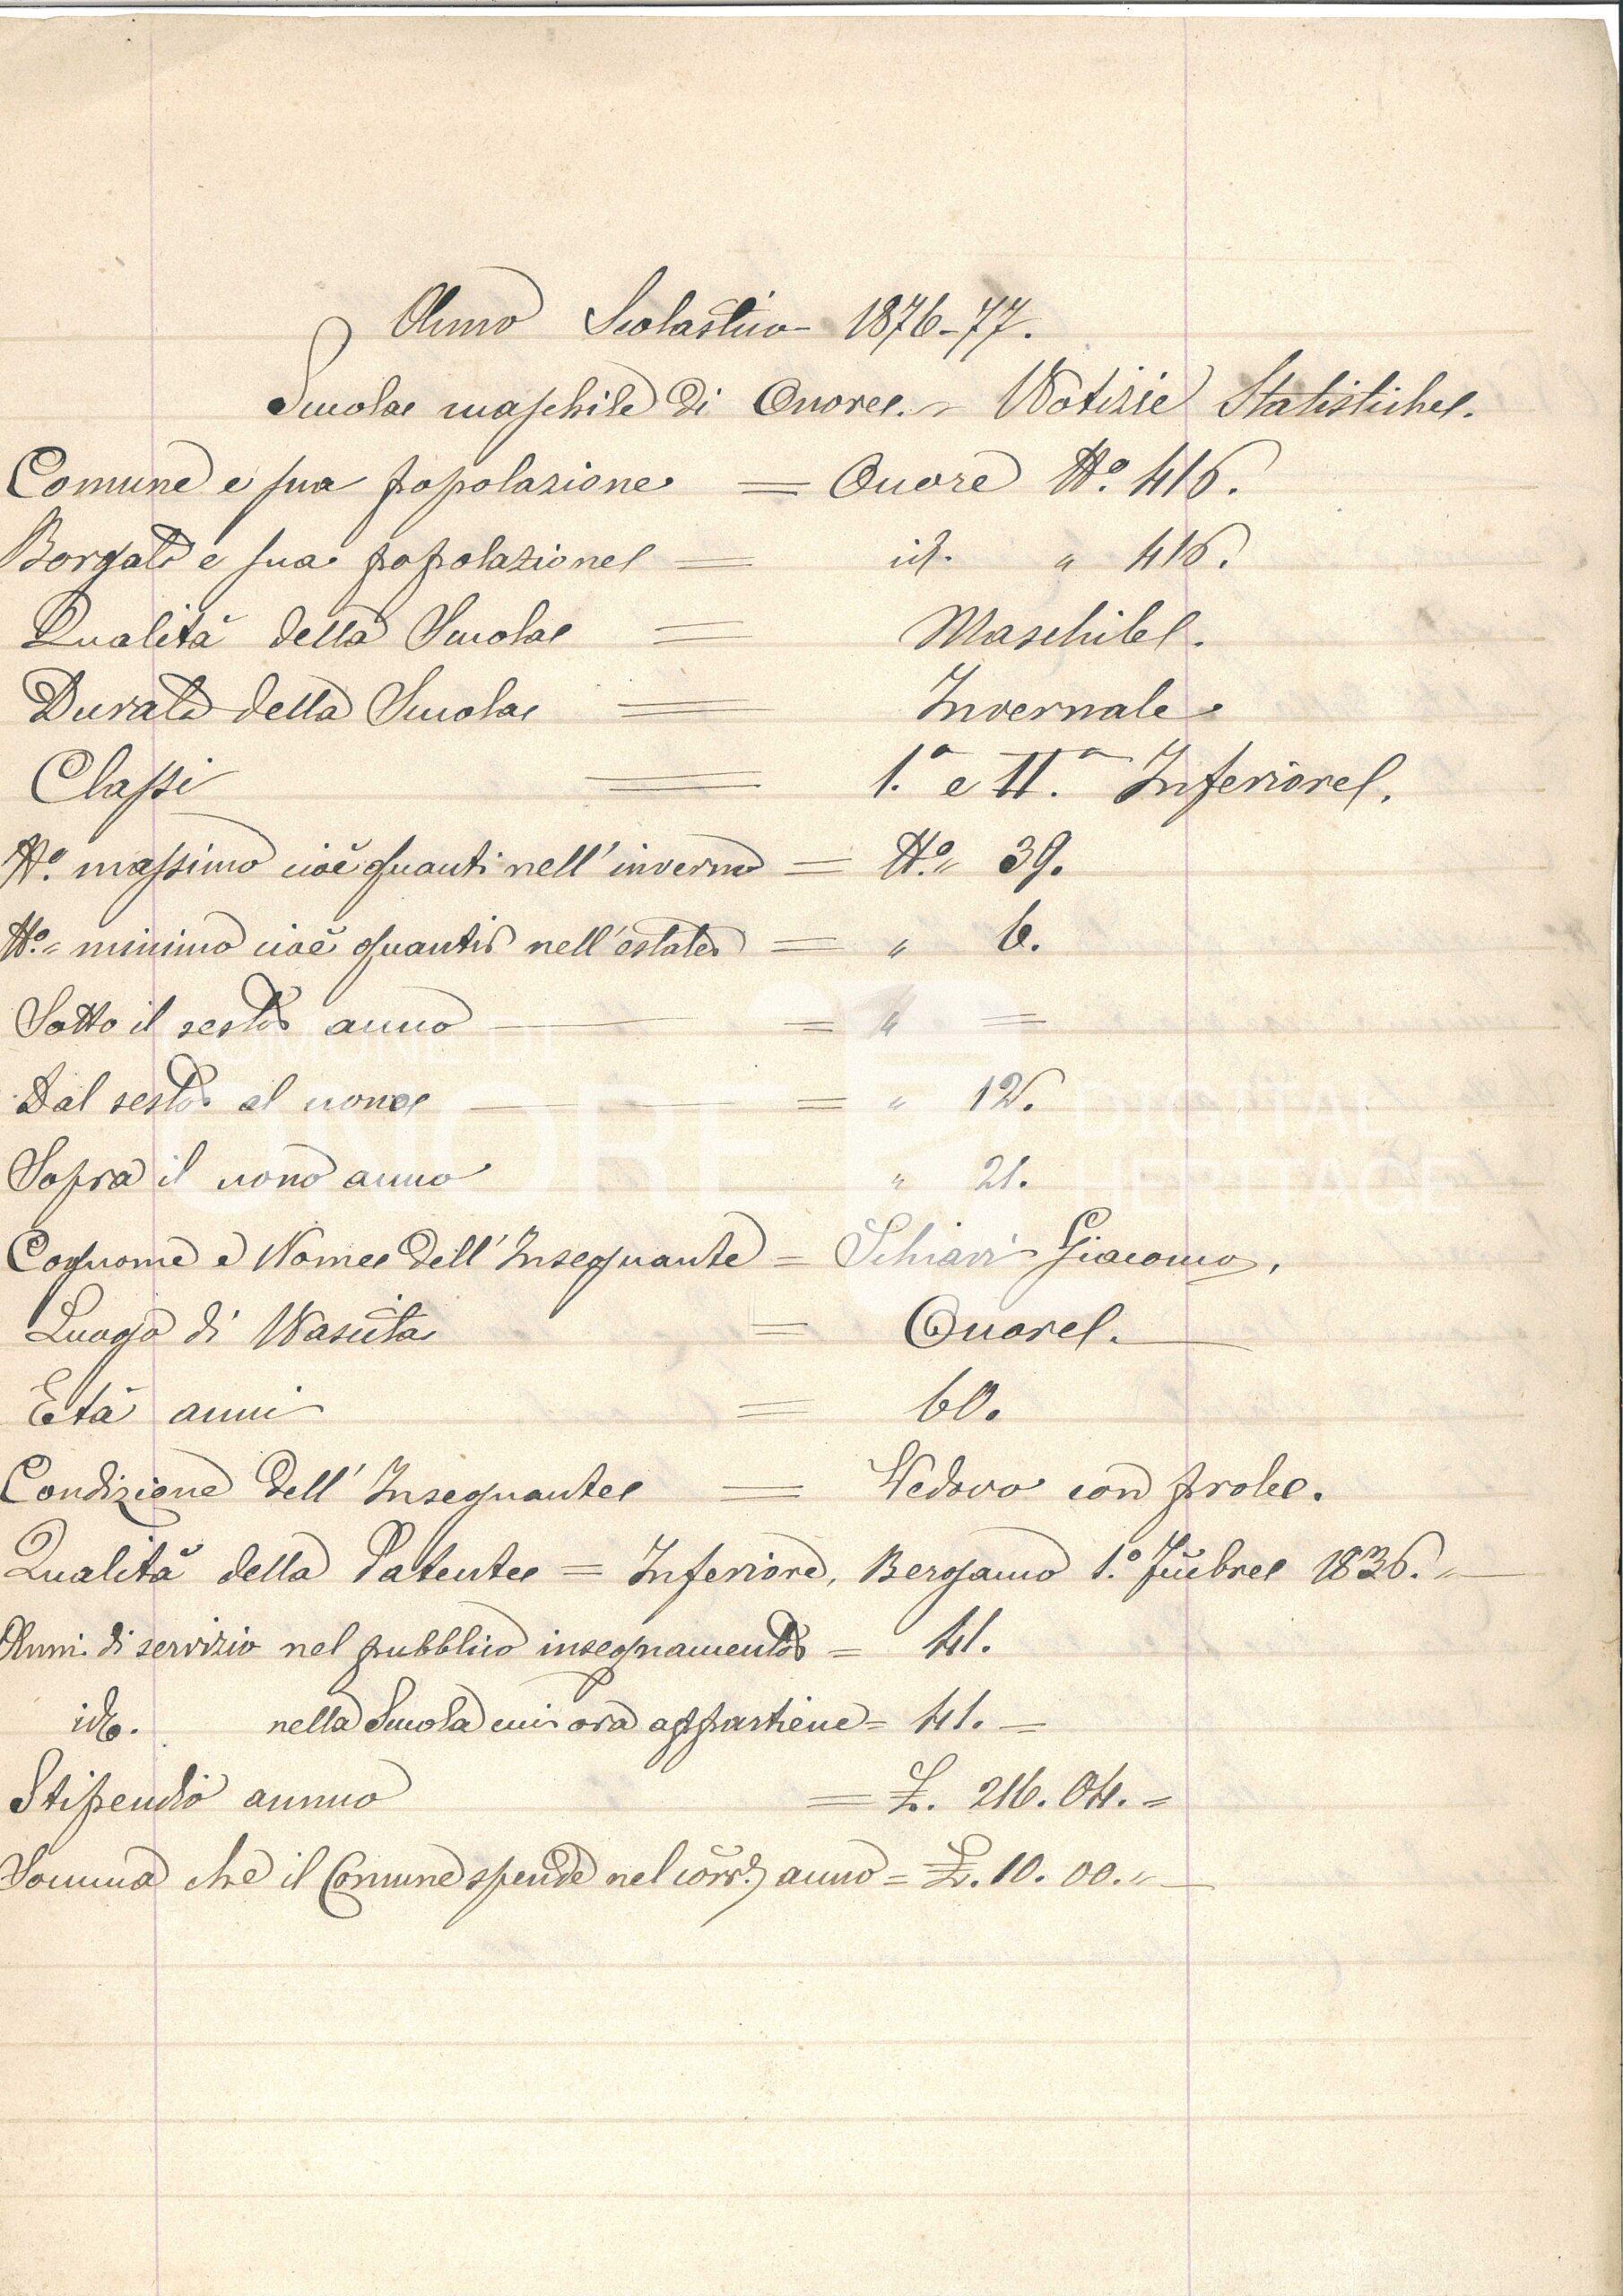 Anno Scolastico 1876-77.
Scuola maschile di Onore. - Notizie Statistiche.
Comune e sua popolazione = Onore N.º 416.
Borgata e sua popolazione = id. " 416.
Qualità della Scuola = Maschile.
Durata della Scuola = Invernale.
Classi = 1.ª e II.ª Inferiore.
N.º massimo cioè quanti nell'inverno = N.º " 39.
N.º " minimo cioè quanti nell'estate = " 6.
Sotto il sesto anno = " =
Dal sesto al nono = " 12.
Sopra il nono anno " 21.
Cognome e Nome dell'Insegnante = Schiavi Giacomo,
Luogo di Nascita = Onore.
Età anni = 60.
Condizione dell'Insegnante = Vedovo con prole.
Qualità della Patente = Inferiore, Bergamo 1.º 1836.
Anni di servizio nel pubblico insegnamento = 41.
id. nella Scuola cui ora appartiene = 41. =
Stipendio annuo = L. 216.04. =
Somma che il Comune spende nel corr. anno = L. 10.00. "